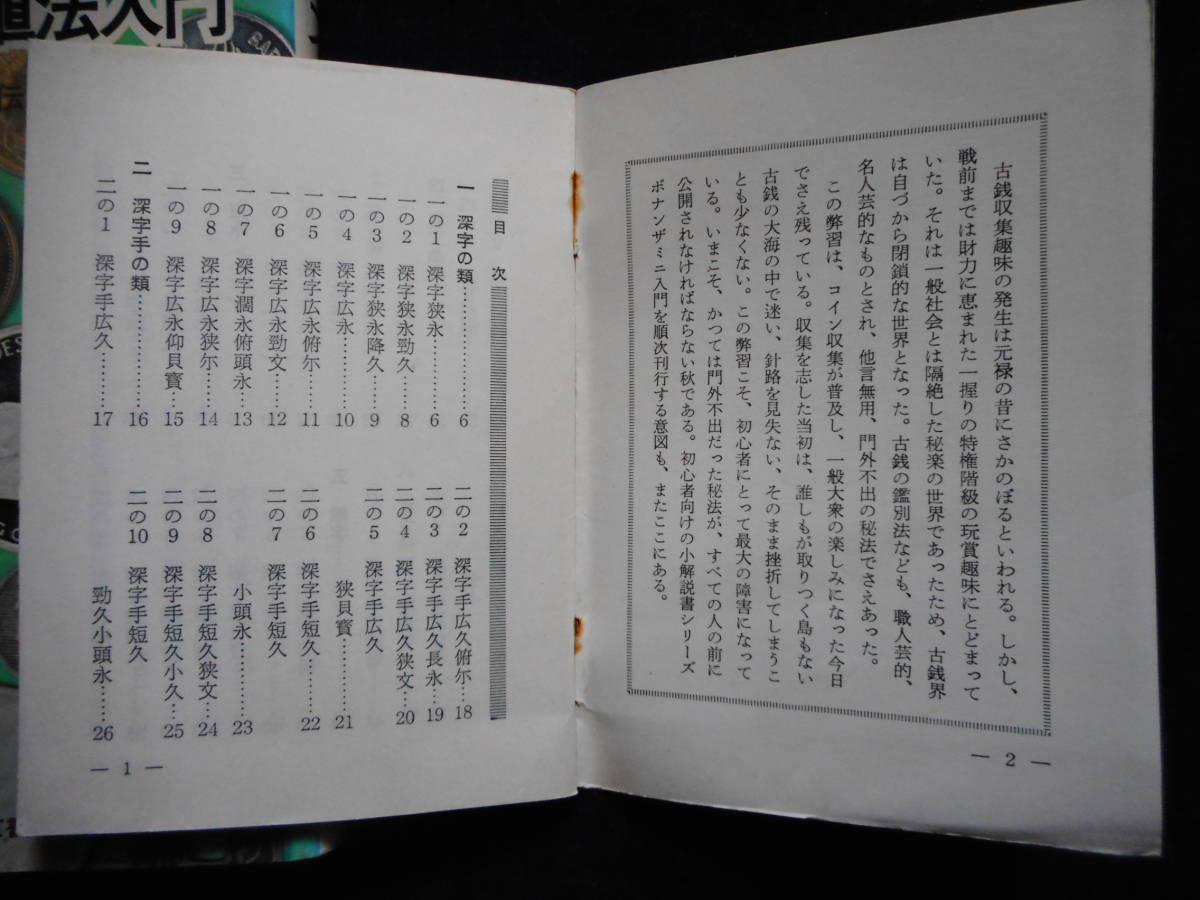 古銭収集趣味の発生は元禄の昔にさかのぼるといわれる。しかし、
戦前までは財力に恵まれた一握りの特権階級の玩賞趣味にとどまって
いた。それは一般社会とは隔絶した秘楽の世界であったため、古銭界
は自づから閉鎖的な世界となった。古銭の鑑別法なども、職人芸的、
名人芸的なものとされ、他言無用、門外不出の秘法でさえあった。
この弊習は、コイン収集が普及し、一般大衆の楽しみになった今日
でさえ残っている。収集を志した当初は、誰しもが取りつく島もない
古銭の大海の中で迷い、針路を見失ない、そのまま挫折してしまうこ
とも少なくない。この弊習こそ、初心者にとって最大の障害になって
いる。いまこそ、かつては門外不出だった秘法が、すべての人の前に
公開されなければならない秋である。初心者向けの小解説書シリーズ
ボナンザミニ入門を順次刊行する意図も、またここにある。
— 2 —
目次
一 深字の類…………………6
一の1 深字狭永…………6
一の2 深字狭永勁久……8
一の3 深字狭永降久……9
一の4 深字広永…………10
一の5 深字広永俯尓……11
一の6 深字広永勁文……12
一の7 深字濶永俯頭永…13
一の8 深字広永狭尓……14
一の9 深字広永仰貝寳…15
二 深字手の類………………16
二の1 深字手広久………17
二の2 深字手広久俯尓…18
二の3 深字手広久長永…19
二の4 深字手広久狭文…20
二の5 深字手広久
狭貝寳…………21
二の6 深字手短久………22
二の7 深字手短久
小頭永…………23
二の8 深字手短久狭文…24
二の9 深字手短久小久…25
二の10 深字手短久
勁久小頭永……26
— 1 —
法入門